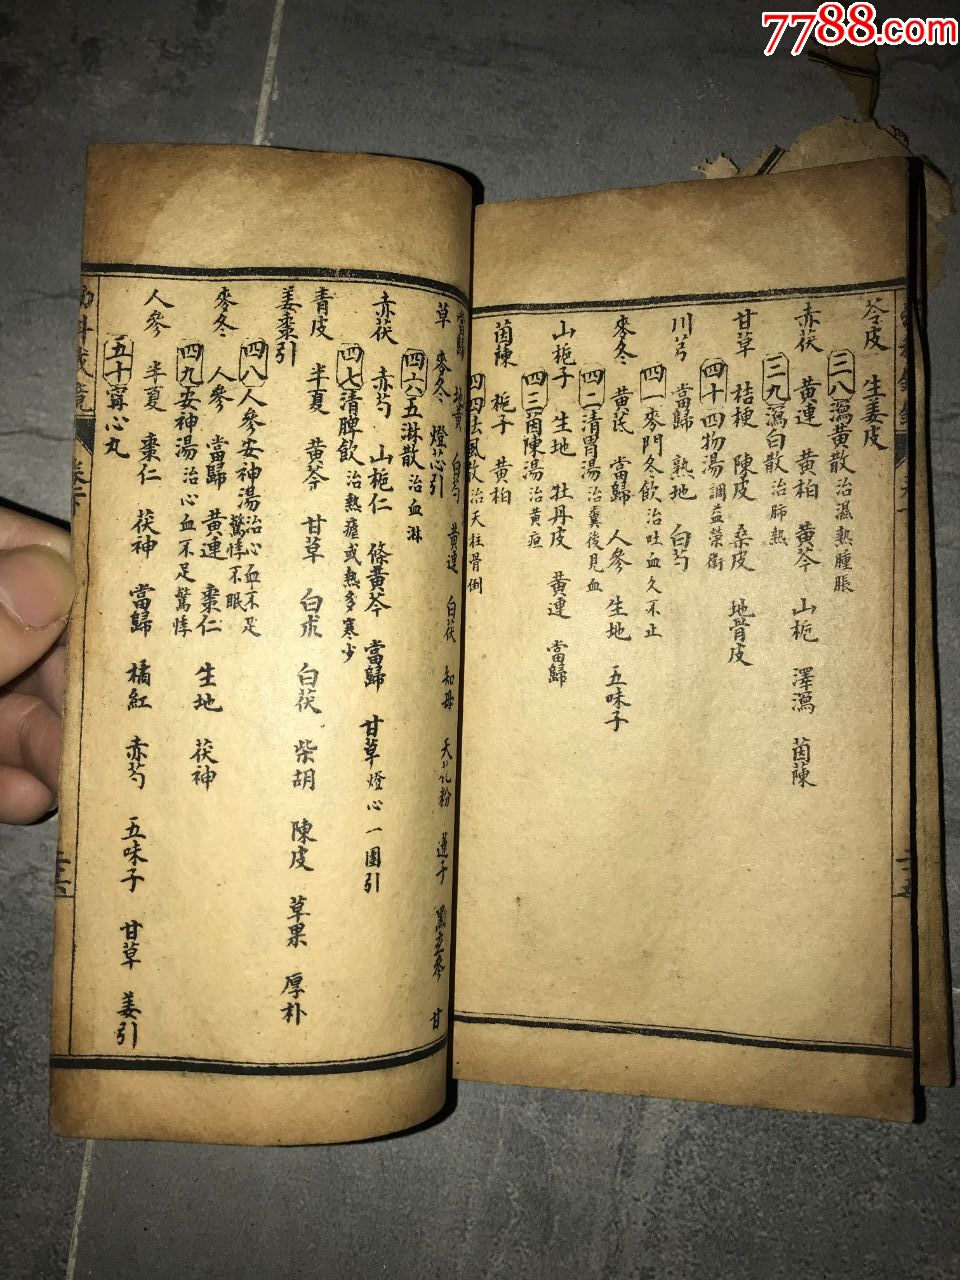 7788.com
苓皮 生姜皮
三八瀉黃散治濕熱腫脹
赤茯 黃連 黃柏 黃芩 山梔 澤瀉 茵蔯
三九瀉白散治肺熱
甘草 桔梗 陳皮 桑皮 地骨皮
四十四物湯調益榮衛
川芎 當歸 熟地 白芍
四一麥門冬飲治吐血久不止
麥冬 黃芪 當歸 人參 生地 五味子
四二清胃湯治糞後見血
山梔子 生地 牡丹皮 黃連 當歸
四三茵陳湯治黃疸
茵蔯 梔子 黃柏
四四祛風散治天柱骨倒
白芍 黃連 白茯 知母 天花粉 蓮子 黑玄參 甘
草 麥冬 燈芯引
四六五淋散治血淋
赤茯 赤芍 山梔仁 條黃芩 當歸 甘草燈心一團引
四七清脾飲治熱瘧或熱多寒少
青皮 半夏 黃芩 甘草 白朮 白茯 柴胡 陳皮 草果 厚朴
姜棗引
四八人參安神湯治心血不足驚悸不眠
麥冬 人參 當歸 黃連 棗仁 生地 茯神
四九安神湯治心血不足驚悸
人參 半夏 棗仁 茯神 當歸 橘紅 赤芍 五味子 甘草 姜引
五十寧心丸